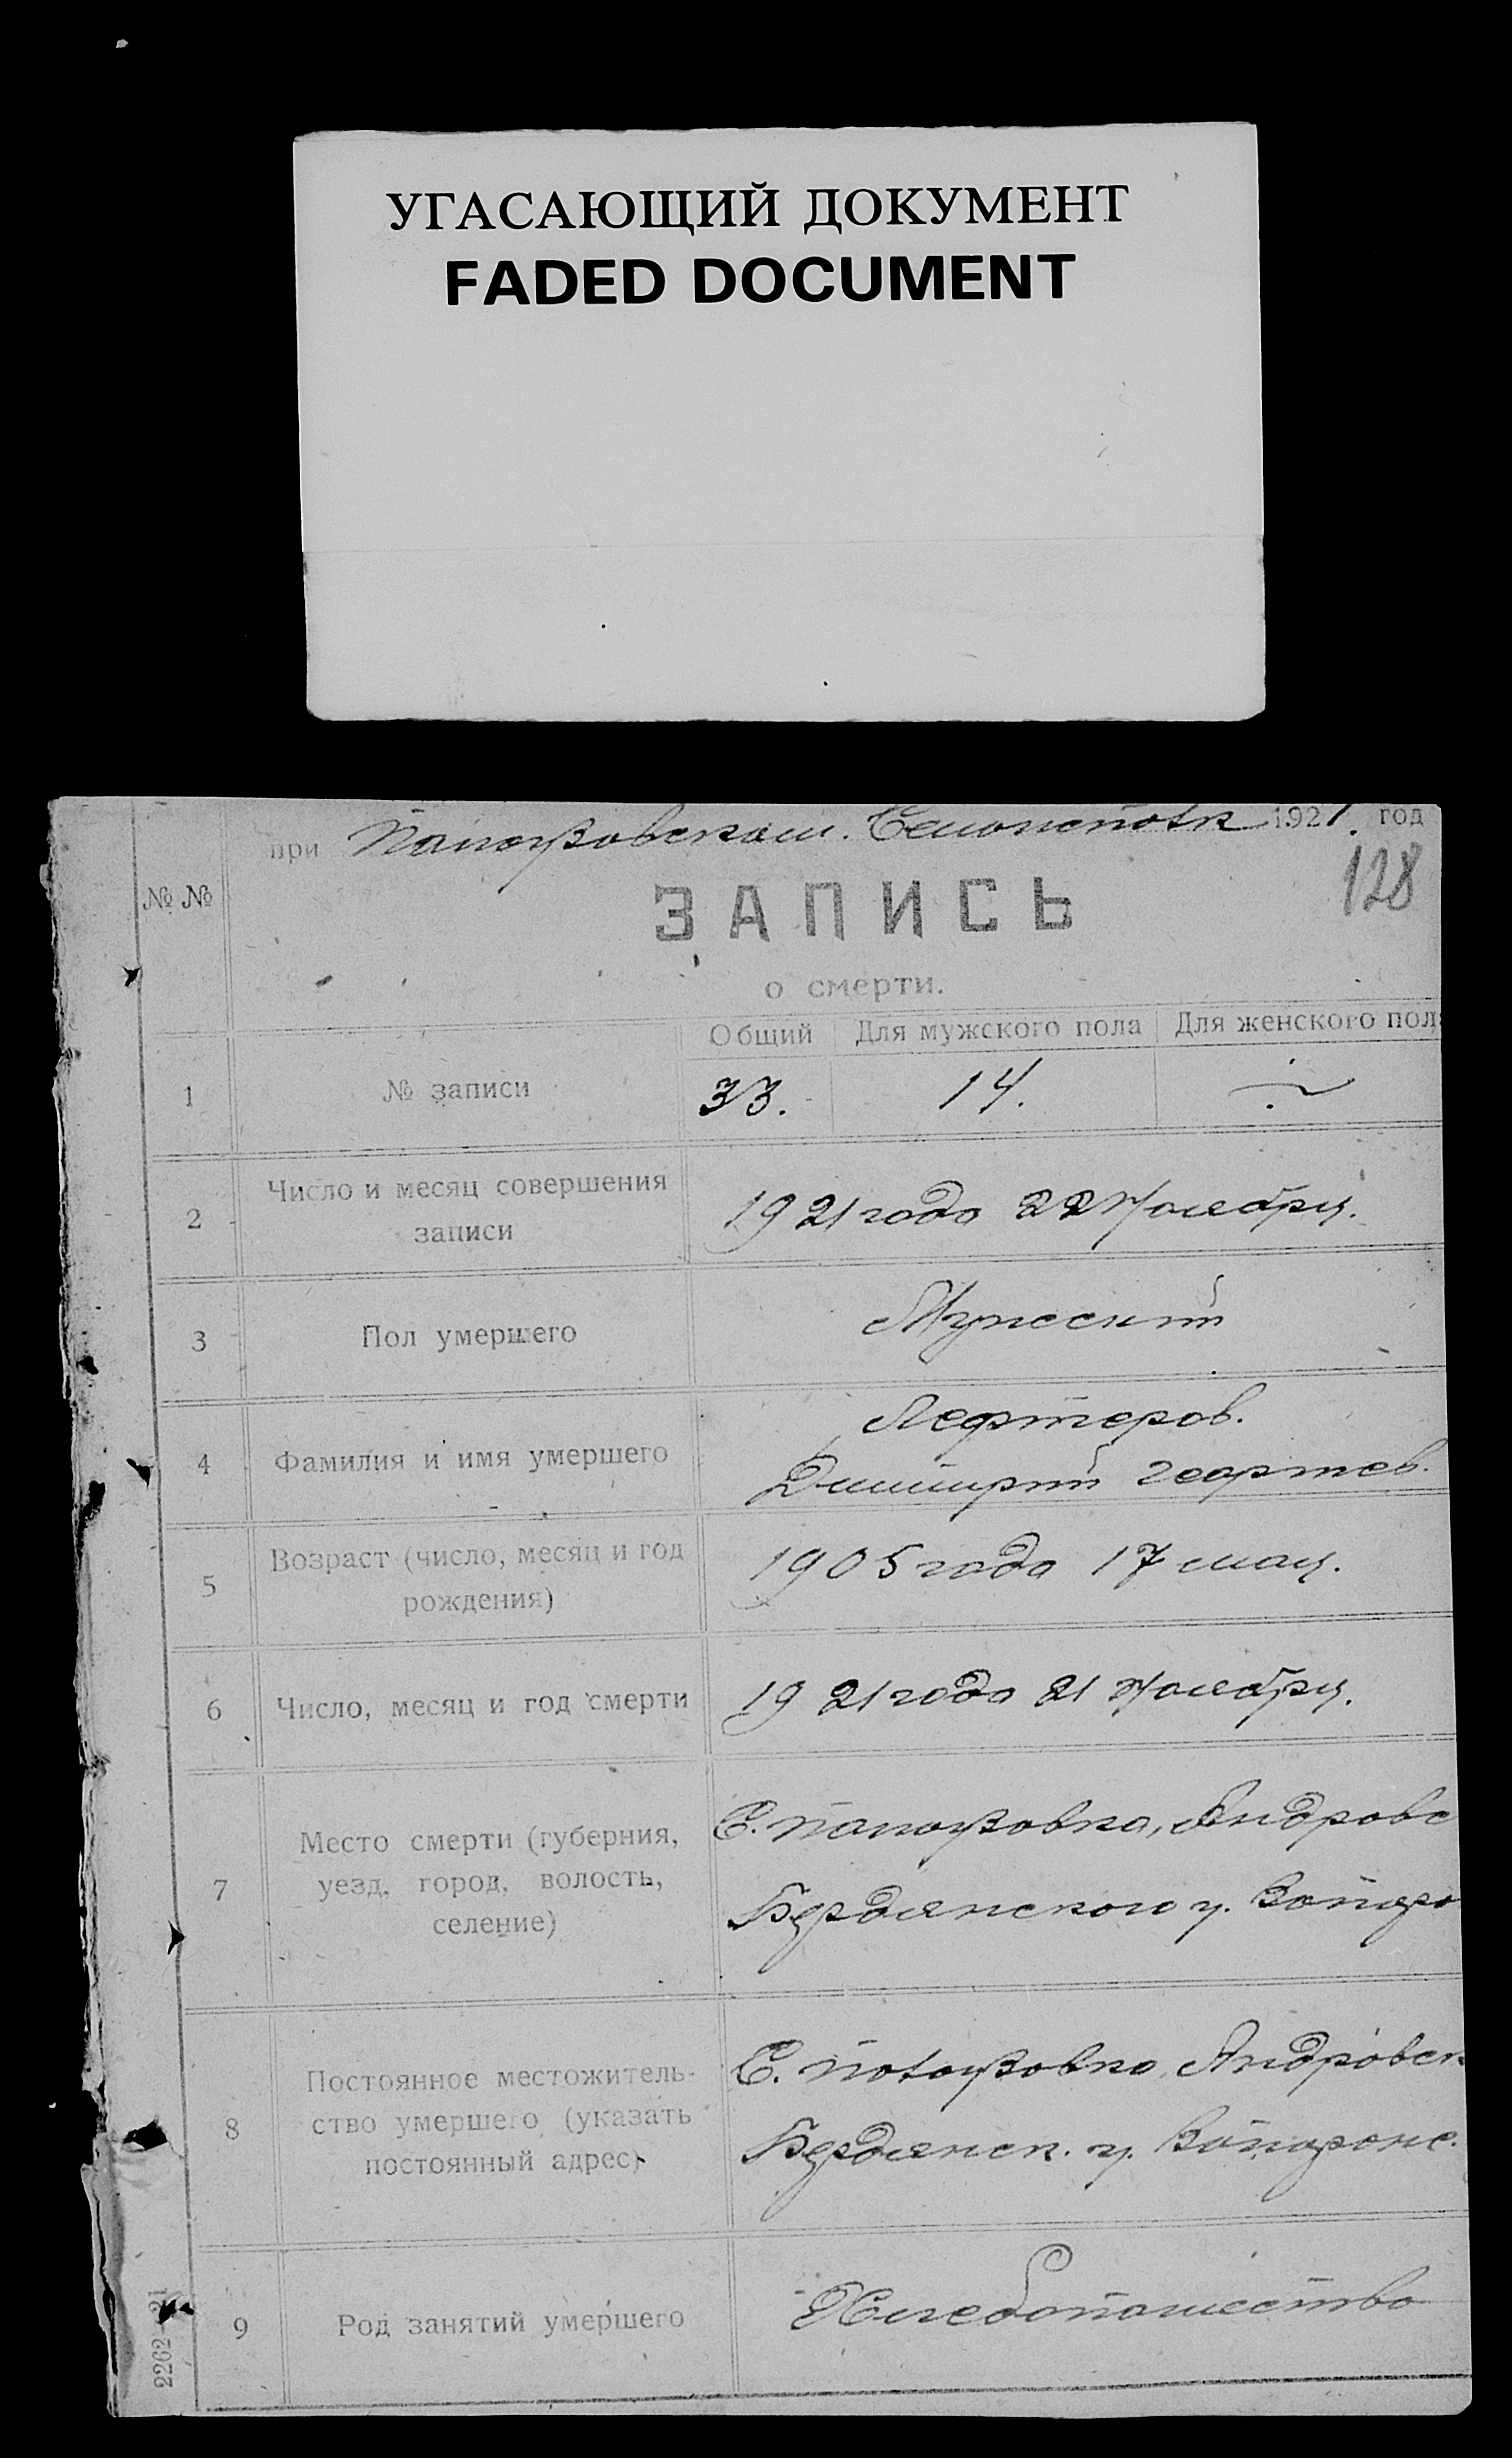 УГАСАЮЩИЙ ДОКУМЕНТ
FADED DOCUMENT
при 1921. год
128
№ №
ЗАПИСЬ
о смерти.
Общий Для мужского пола Для женского пол
1 № записи 33. 14.
2 Число и месяц совершения
записи
1921 года 22 Ноября.
3 Пол умершего Мужеский
4 Фамилия и имя умершего
Лефтеров.
Димитрий Георгиев.
5 Возраст (число, месяц и год
рождения)
1905 года 17 мая.
6 Число, месяц и год смерти 1921 года 21 Ноября.
7 Место смерти (губерния,
уезд, город, волость,
селение)
С. Андровс
Бердянского у. Запоро
8 Постоянное местожитель-
ство умершего (указать
постоянный адрес)
С. Андровск
Бердянск. у. Запорожс.
9 Род занятий умершего Хлебопашество
2262—21